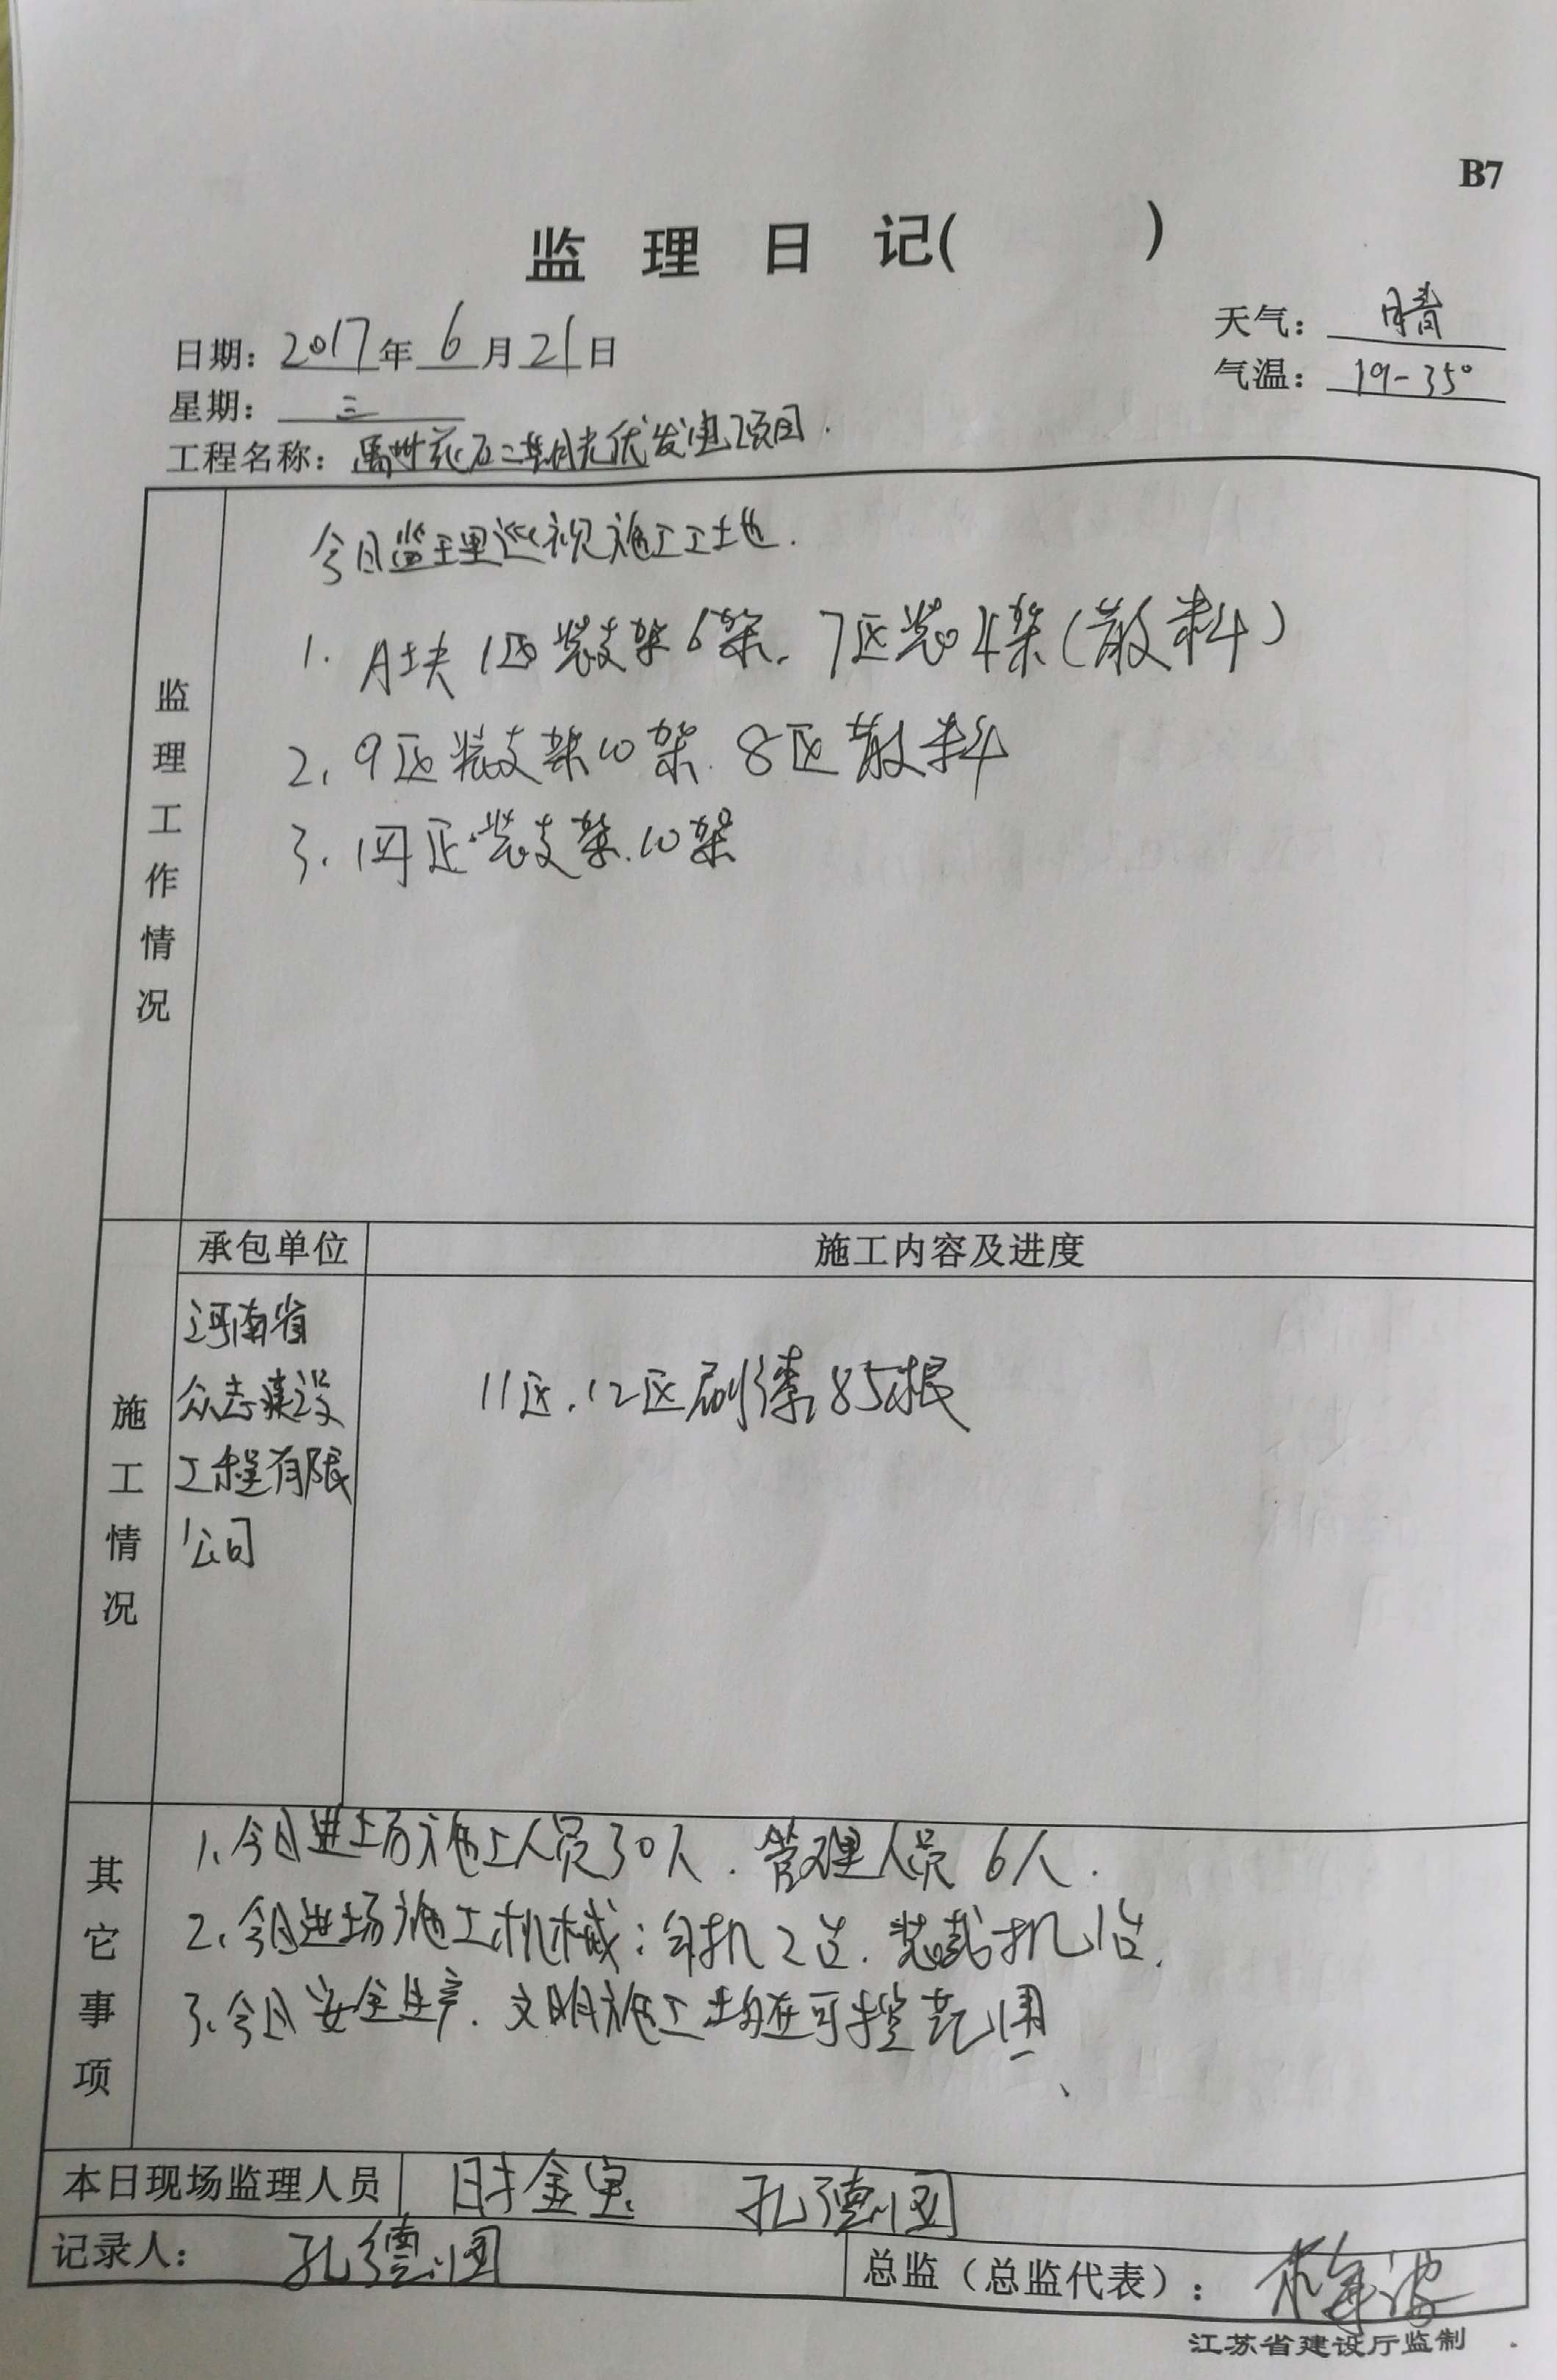 B7
监 理 日 记( )
日期: 2017年 6 月 21 日
天气: 晴
星期: 三
气温: 19-35°
工程名称: 禹州花石二期光伏发电项目.
监理工作情况
今日监理巡视施工工地.
1. A块 1区装支架6架. 7区装4架(散料)
2. 9区装支架10架. 8区散料
3. 区装支架.10架
施工情况
承包单位
施工内容及进度
河南省
众志建设
工程有限
公司
11区.12区刷漆85根
其它事项
1.今日进场施工人员30人. 管理人员 6人.
2.今日进场施工机械: 2台. 装载机1台.
3.今日安全生产. 文明施工均在可控范围
本日现场监理人员 金宝 孔德
记录人: 孔德
总监(总监代表):
江苏省建设厅监制